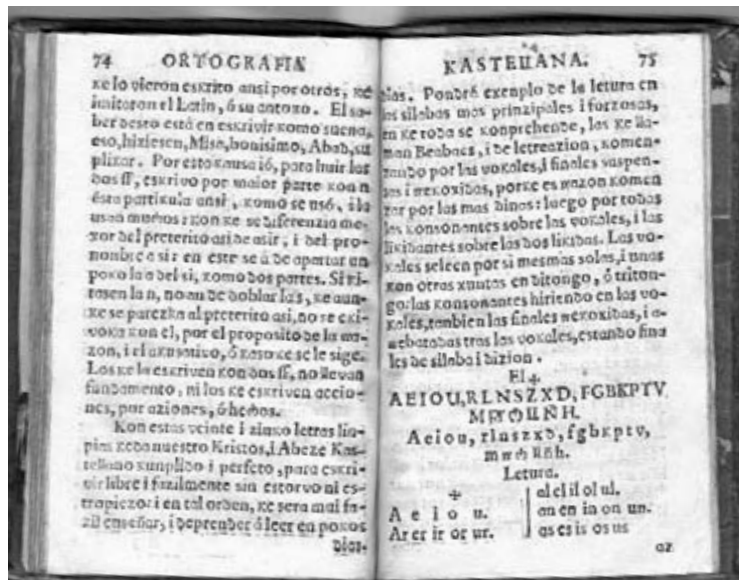 74 ORTOGRAFIA
ke lo vieron eskrito ansi por otros, ke
imitaron el Latin, ó su antoxo. El sa-
ber desto está en eskrivir komo suena,
eso, hiziesen, Misa, bonisimo, Abad, su
plikar. Por esta kausa ió, para huir las
dos ſſ, eskrivo por maior parte kon n
ésta partikula ansi, komo se usó, i la
usan muchos: kon ke se diferenzia me-
xor del preterito asi de asir, i del pro-
nombre a sir en este se á de apartar un
poko la a del si, komo dos partes. Si ki-
tasen la n, no an de doblar la s, ke aun-
ke se parezka al preterito asi, no se eki-
voka kon el, por el proposito de la rra-
zon, i el akusativo, ó kaso ke se le sige.
Los ke la eskriven kon dos ſſ, no llevan
fundamento, ni los ke eskriven accio-
nes, por aziones, ó hechos.
Kon estas veinte i zinko letras lin-
pias keda nuestro Kristos, i Abeze Kas-
tellano kunplido i perfeto, para eskri-
vir libre i fazilmente sin estorvo ni es-
tropiezo: i en tal orden, ke sera mui fa-
zil enseñar, i deprender á leer en pokos
dias.
KASTELLANA. 75
dias. Pondré exenplo de la letura en
las silabas mas prinzipales i forzosas,
en ke toda se konprehende, las ke lla-
man Beabaes, i de letreazion, komen-
zando por las vokales, i finales suspen-
sas i rrekoxidas, porke es rrazon komen
zar por las mas dinas: luego por todas
las konsonantes sobre las vokales, i las
likidantes sobre las dos likidas. Las vo-
kales se leen por si mesmas solas, i unas
kon otras xuntas en ditongo, ó triton-
go: las konsonantes hiriendo en las vo-
kales, tanbien las finales rrekoxidas, i a-
rrebatadas tras las vokales, estando fina
les de silaba i dizion.
El ✠
AEIOU, RLNSZXD, FGBKPTV
M RR CH LL Ñ H.
Aeiou, rlnszxd, fgbkptv,
m rr ch ll ñ h.
Letura.
✠
A e i o u.
Ar er ir or ur.
al el il ol ul.
an en in on un.
as es is os us
az